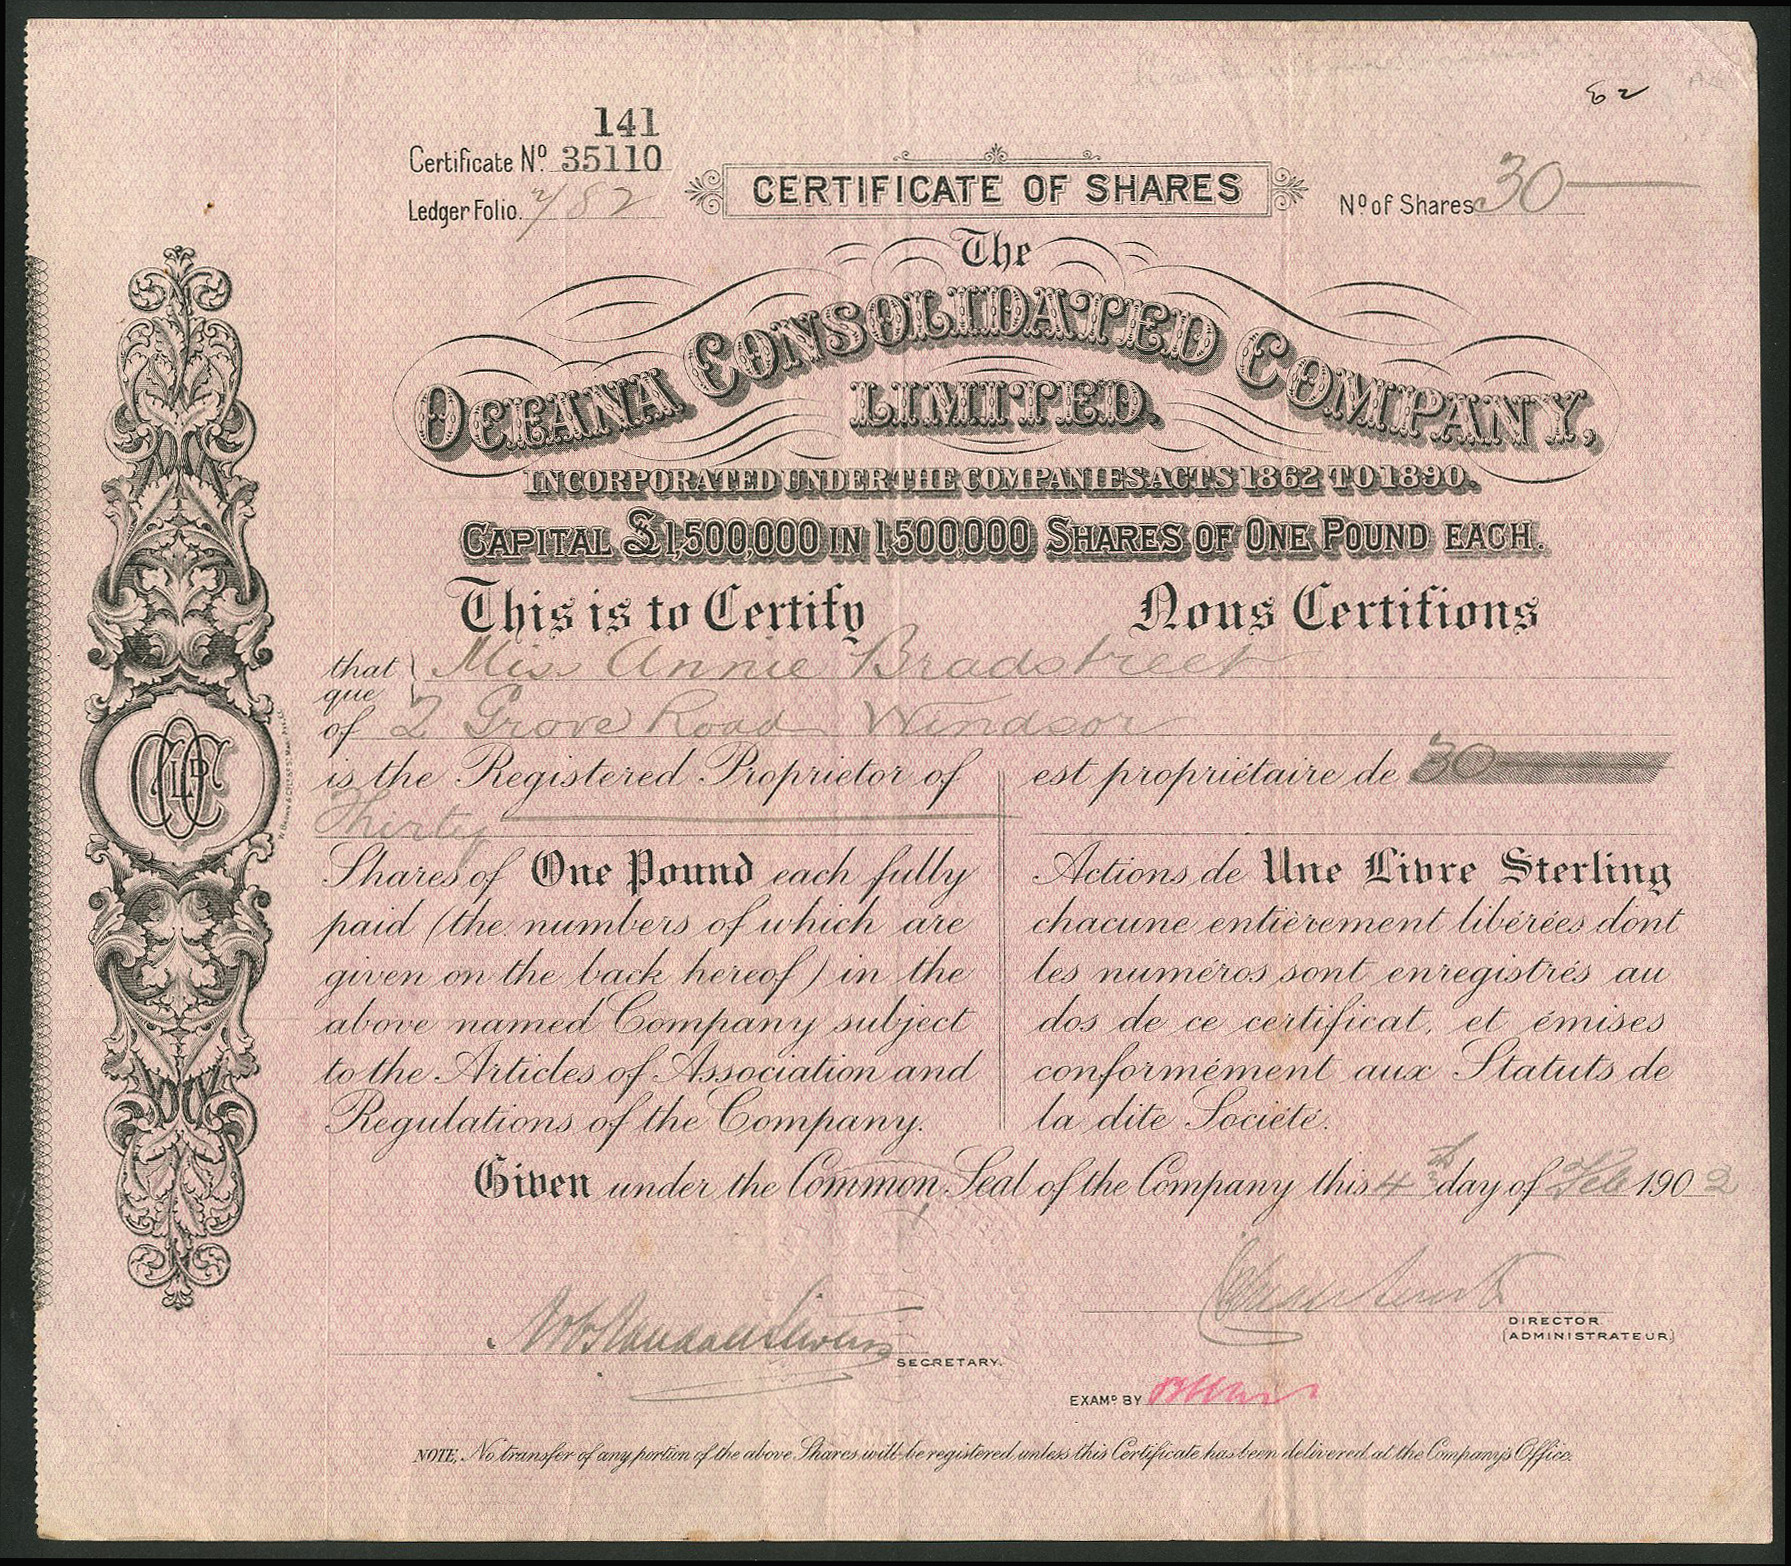 62
141
Certificate No. 35110
Ledger Folio. 2/82
CERTIFICATE OF SHARES
No of Shares 30
The
OCEANA CONSOLIDATED COMPANY,
LIMITED.
INCORPORATED UNDER THE COMPANIES ACTS 1862 TO 1890.
CAPITAL £1,500,000 IN 1,500,000 SHARES OF ONE POUND EACH.
This is to Certify
Nous Certifions
that
que
Miss Annie Bradstreet
of 2 Grove Road Windsor
is the Registered Proprietor of
Thirty
Shares of One Pound each fully
paid (the numbers of which are
given on the back hereof) in the
above named Company subject
to the Articles of Association and
Regulations of the Company.
est propriétaire de 30
Actions de Une Livre Sterling
chacune entièrement libérées dont
les numéros sont enregistrés au
dos de ce certificat, et émises
conformément aux Statuts de
la dite Société.
Given under the Common Seal of the Company this 4th day of Feb 1902
SECRETARY.
DIRECTOR
(ADMINISTRATEUR)
EXAMD BY
NOTE, No transfer of any portion of the above Shares will be registered unless this Certificate has been delivered at the Company's Office.